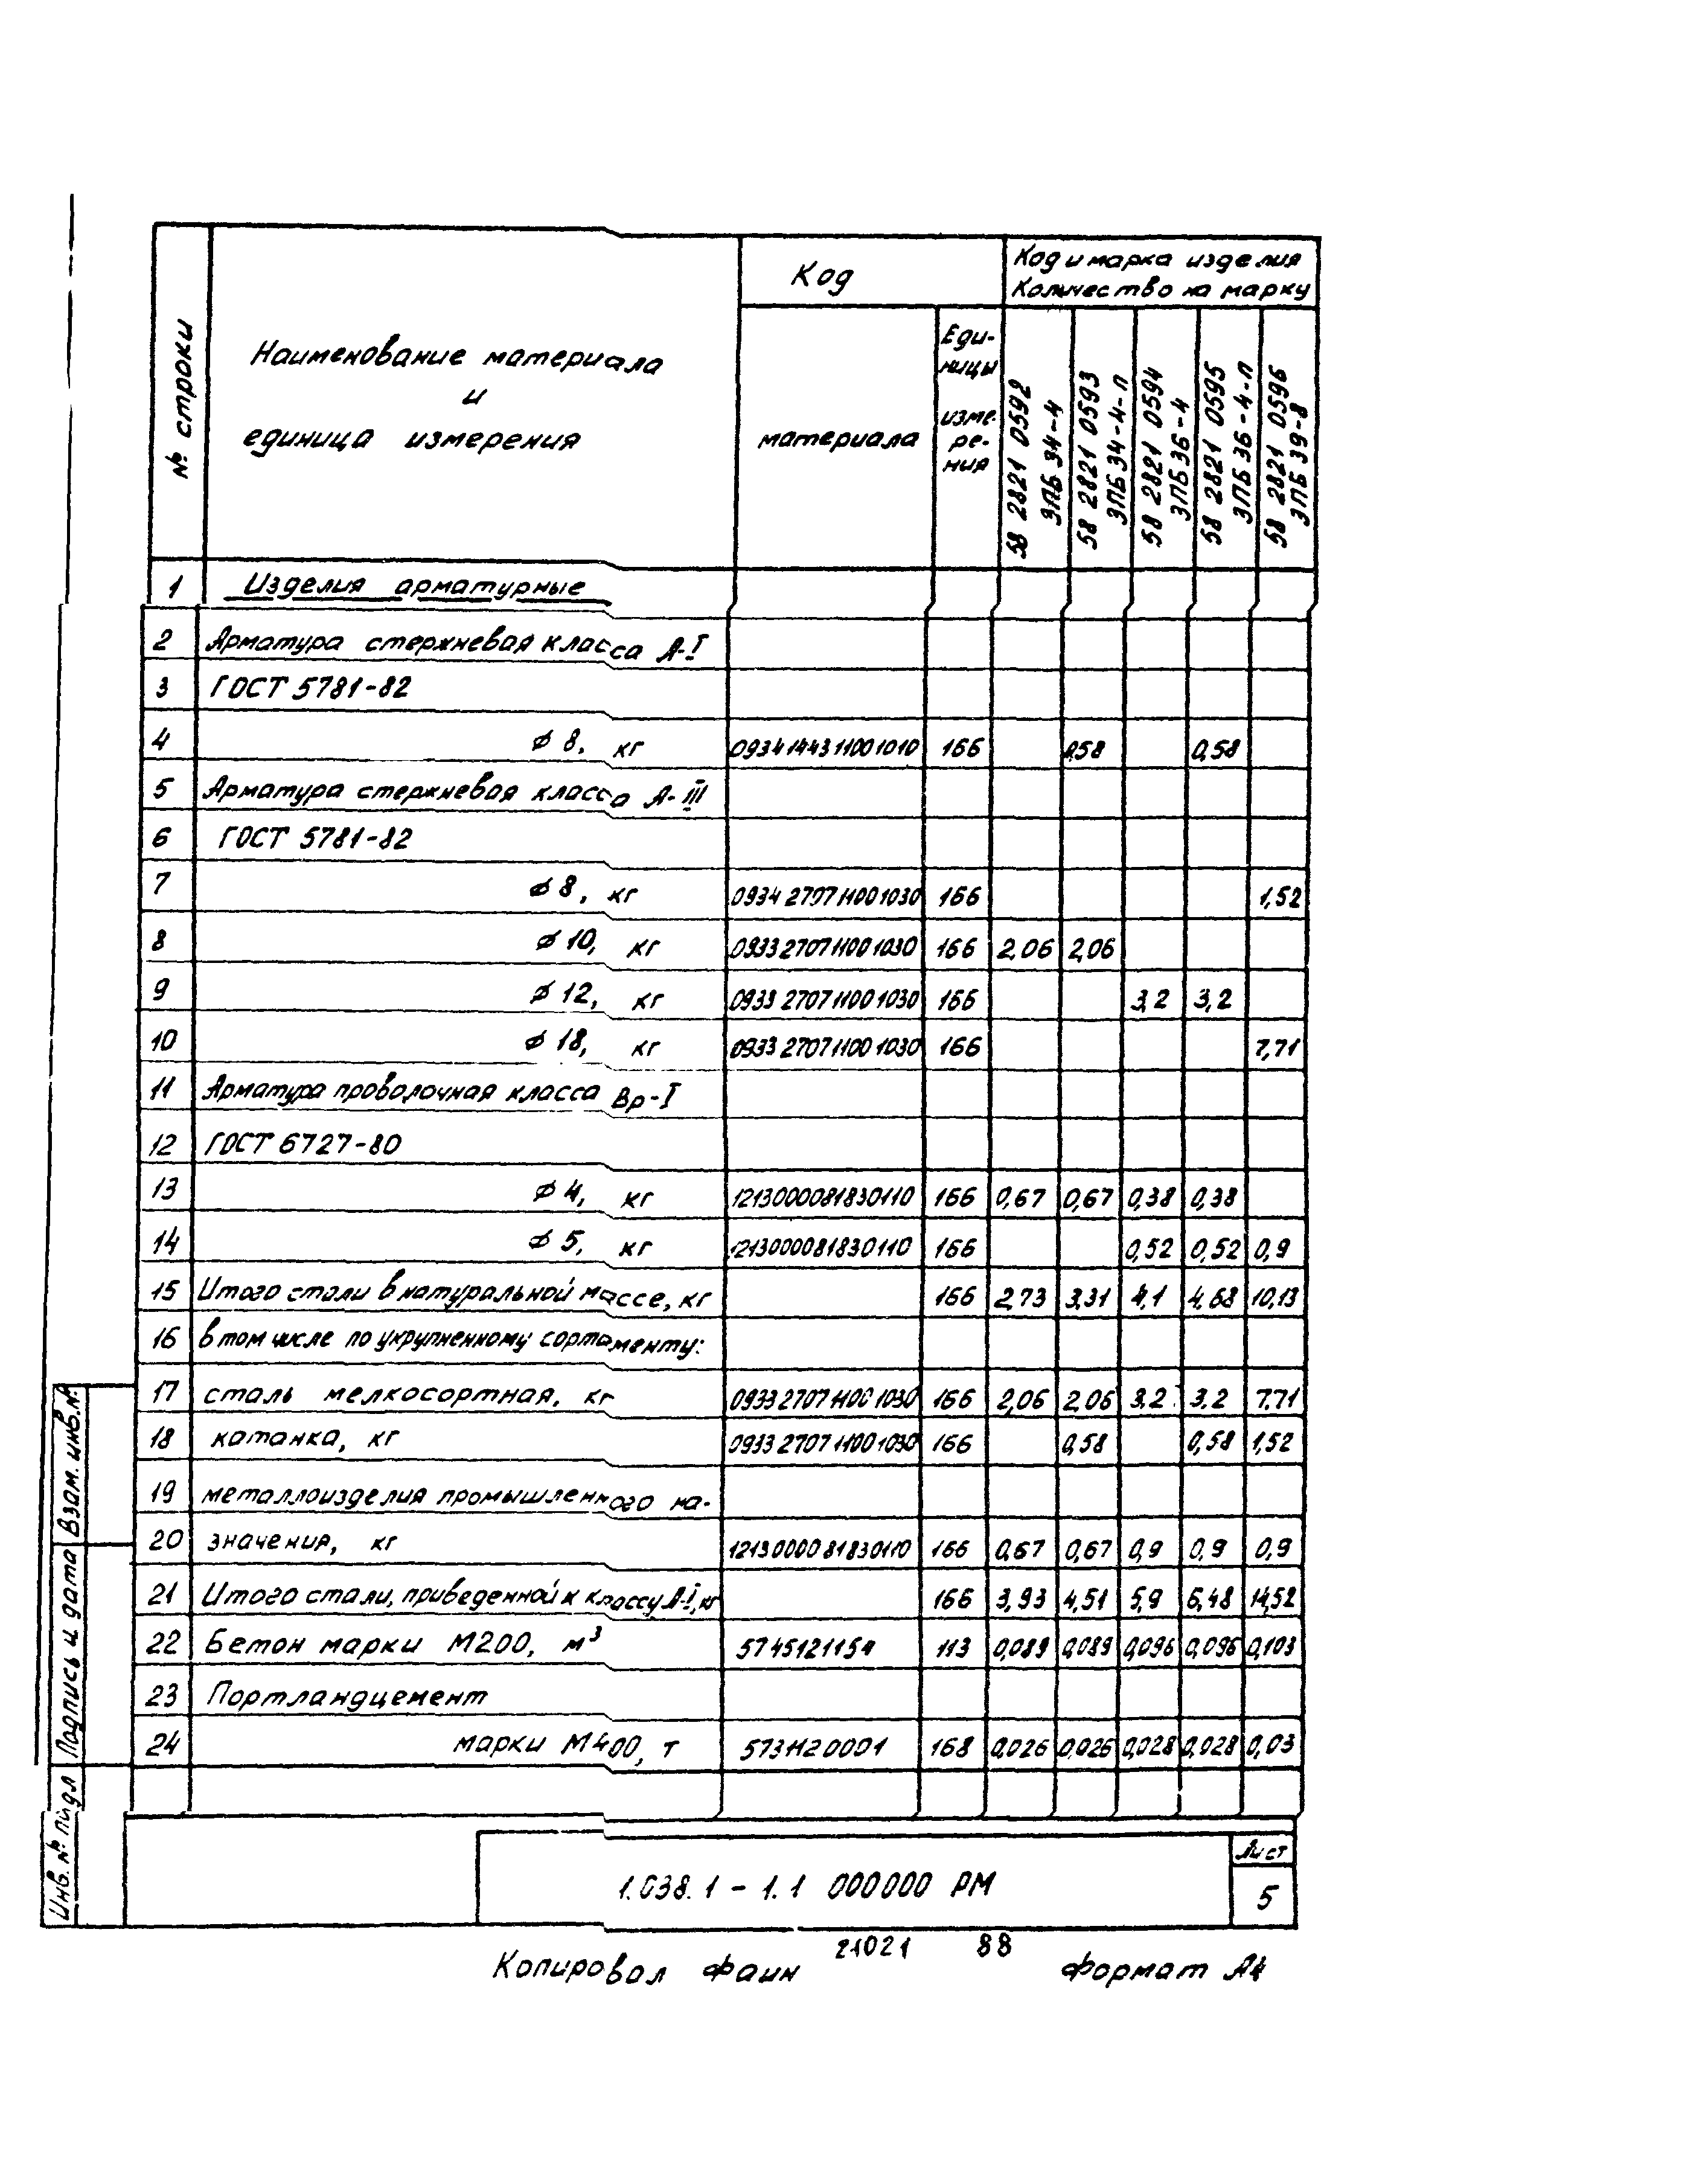 № строки
Наименование материала
и
единица измерения
Код
материала
Еди-
ницы
изме-
ре-
ния
Код и марка изделия
Количество на марку
58 2821 0592
3ПБ 34-4
58 2821 0593
3ПБ 34-4-п
58 2821 0594
3ПБ 36-4
58 2821 0595
3ПБ 36-4-п
58 2821 0596
3ПБ 39-8
1 Изделия арматурные
2 Арматура стержневая класса А-I
3 ГОСТ 5781-82
4 ⌀ 8, кг 0934144311001010 166 0,58 0,58
5 Арматура стержневая класса А-III
6 ГОСТ 5781-82
7 ⌀ 8, кг 0934270711001030 166 1,52
8 ⌀ 10, кг 0933270711001030 166 2,06 2,06
9 ⌀ 12, кг 0933270711001030 166 3,2 3,2
10 ⌀ 18, кг 0933270711001030 166 7,71
11 Арматура проволочная класса Вр-I
12 ГОСТ 6727-80
13 ⌀ 4, кг 1213000081830110 166 0,67 0,67 0,38 0,38
14 ⌀ 5, кг 1213000081830110 166 0,52 0,52 0,9
15 Итого стали в натуральной массе, кг 166 2,73 3,31 4,1 4,68 10,13
16 в том числе по укрупненному сортаменту:
17 сталь мелкосортная, кг 0933270711001030 166 2,06 2,06 3,2 3,2 7,71
18 катанка, кг 0933270711001030 166 0,58 0,58 1,52
19 металлоизделия промышленного на-
20 значения, кг 1213000081830110 166 0,67 0,67 0,9 0,9 0,9
21 Итого стали, приведенной к классу А-I, кг 166 3,93 4,51 5,9 6,48 14,52
22 Бетон марки М200, м³ 5745121154 113 0,089 0,089 0,096 0,096 0,103
23 Портландцемент
24 марки М400, т 5731120001 168 0,026 0,026 0,028 0,028 0,03
Взам. инв. №
Подпись и дата
Инв. № подл
1.038.1-1.1 000000 РМ
Лист
5
21021 88
Копировал Фаин Формат А4